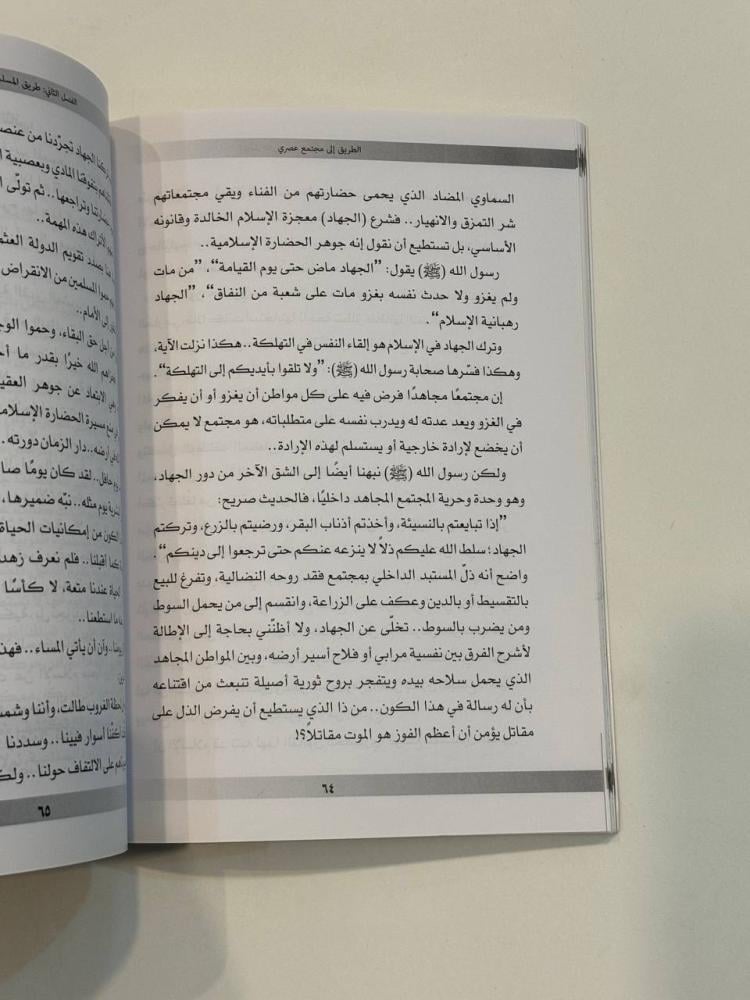 الطريق إلى مجتمع عصري
السماوي المضاد الذي يحمى حضارتهم من الفناء ويقي مجتمعاتهم
شر التمزق والانهيار.. فشرع (الجهاد) معجزة الإسلام الخالدة وقانونه
الأساسي، بل تستطيع أن نقول إنه جوهر الحضارة الإسلامية..
رسول الله (ﷺ) يقول: ”الجهاد ماض حتى يوم القيامة“، ”من مات
ولم يغزو ولا حدث نفسه بغزو مات على شعبة من النفاق“، ”الجهاد
رهبانية الإسلام“.
وترك الجهاد في الإسلام هو إلقاء النفس في التهلكة..هكذا نزلت الآية،
وهكذا فسّرها صحابة رسول الله (ﷺ): ”ولا تلقوا بأيديكم إلى التهلكة“.
إن مجتمعًا مجاهدًا فرض فيه على كل مواطن أن يغزو أو أن يفكر
في الغزو ويعد عدته له ويدرب نفسه على متطلباته، هو مجتمع لا يمكن
أن يخضع لإرادة خارجية أو يستسلم لهذه الإرادة..
ولكن رسول الله (ﷺ) نبهنا أيضًا إلى الشق الآخر من دور الجهاد،
وهو وحدة وحرية المجتمع المجاهد داخليًا، فالحديث صريح:
”إذا تبايعتم بالنسيئة، وأخذتم أذناب البقر، ورضيتم بالزرع، وتركتم
الجهاد؛ سلط الله عليكم ذلاً لا ينزعه عنكم حتى ترجعوا إلى دينكم“.
واضح أنه ذلّ المستبد الداخلي بمجتمع فقد روحه النضالية، وتفرغ للبيع
بالتقسيط أو بالدين وعكف على الزراعة، وانقسم إلى من يحمل السوط
ومن يضرب بالسوط.. تخلّى عن الجهاد، ولا أظنّني بحاجة إلى الإطالة
لأشرح الفرق بين نفسية مرابي أو فلاح أسير أرضه، وبين المواطن المجاهد
الذي يحمل سلاحه بيده ويتفجر بروح ثورية أصيلة تنبعث من اقتناعه
بأن له رسالة في هذا الكون.. من ذا الذي يستطيع أن يفرض الذل على
مقاتل يؤمن أن أعظم الفوز هو الموت مقاتلاً؟!
٦٤
الفصل الثاني: طريق
الجهاد تجرّدنا من
بتفوقنا المادي وبعصبية
وتراجعها.. ثم تولّى
هذه المهمة..
بصدد تقويم الدولة
المسلمين من الانقراض
إلى الأمام..
أجل حق البقاء، وحموا
الله خيرًا بقدر ما
الابتعاد عن جوهر
مسيرة الحضارة
في أرضه..دار الزمان دورته.
لقد كان يومًا
يوم مثله.. نبّه ضميرها،
الكون من إمكانيات الحياة
كما أقبلنا.. فلم نعرف
عندنا متعة، لا كأسًا
ما استطعنا..
وآن أن يأتي المساء..
لحظة الغروب طالت، وأننا
أسوار فيينا.. وسددنا
على الالتفاف حولنا..
٦٥